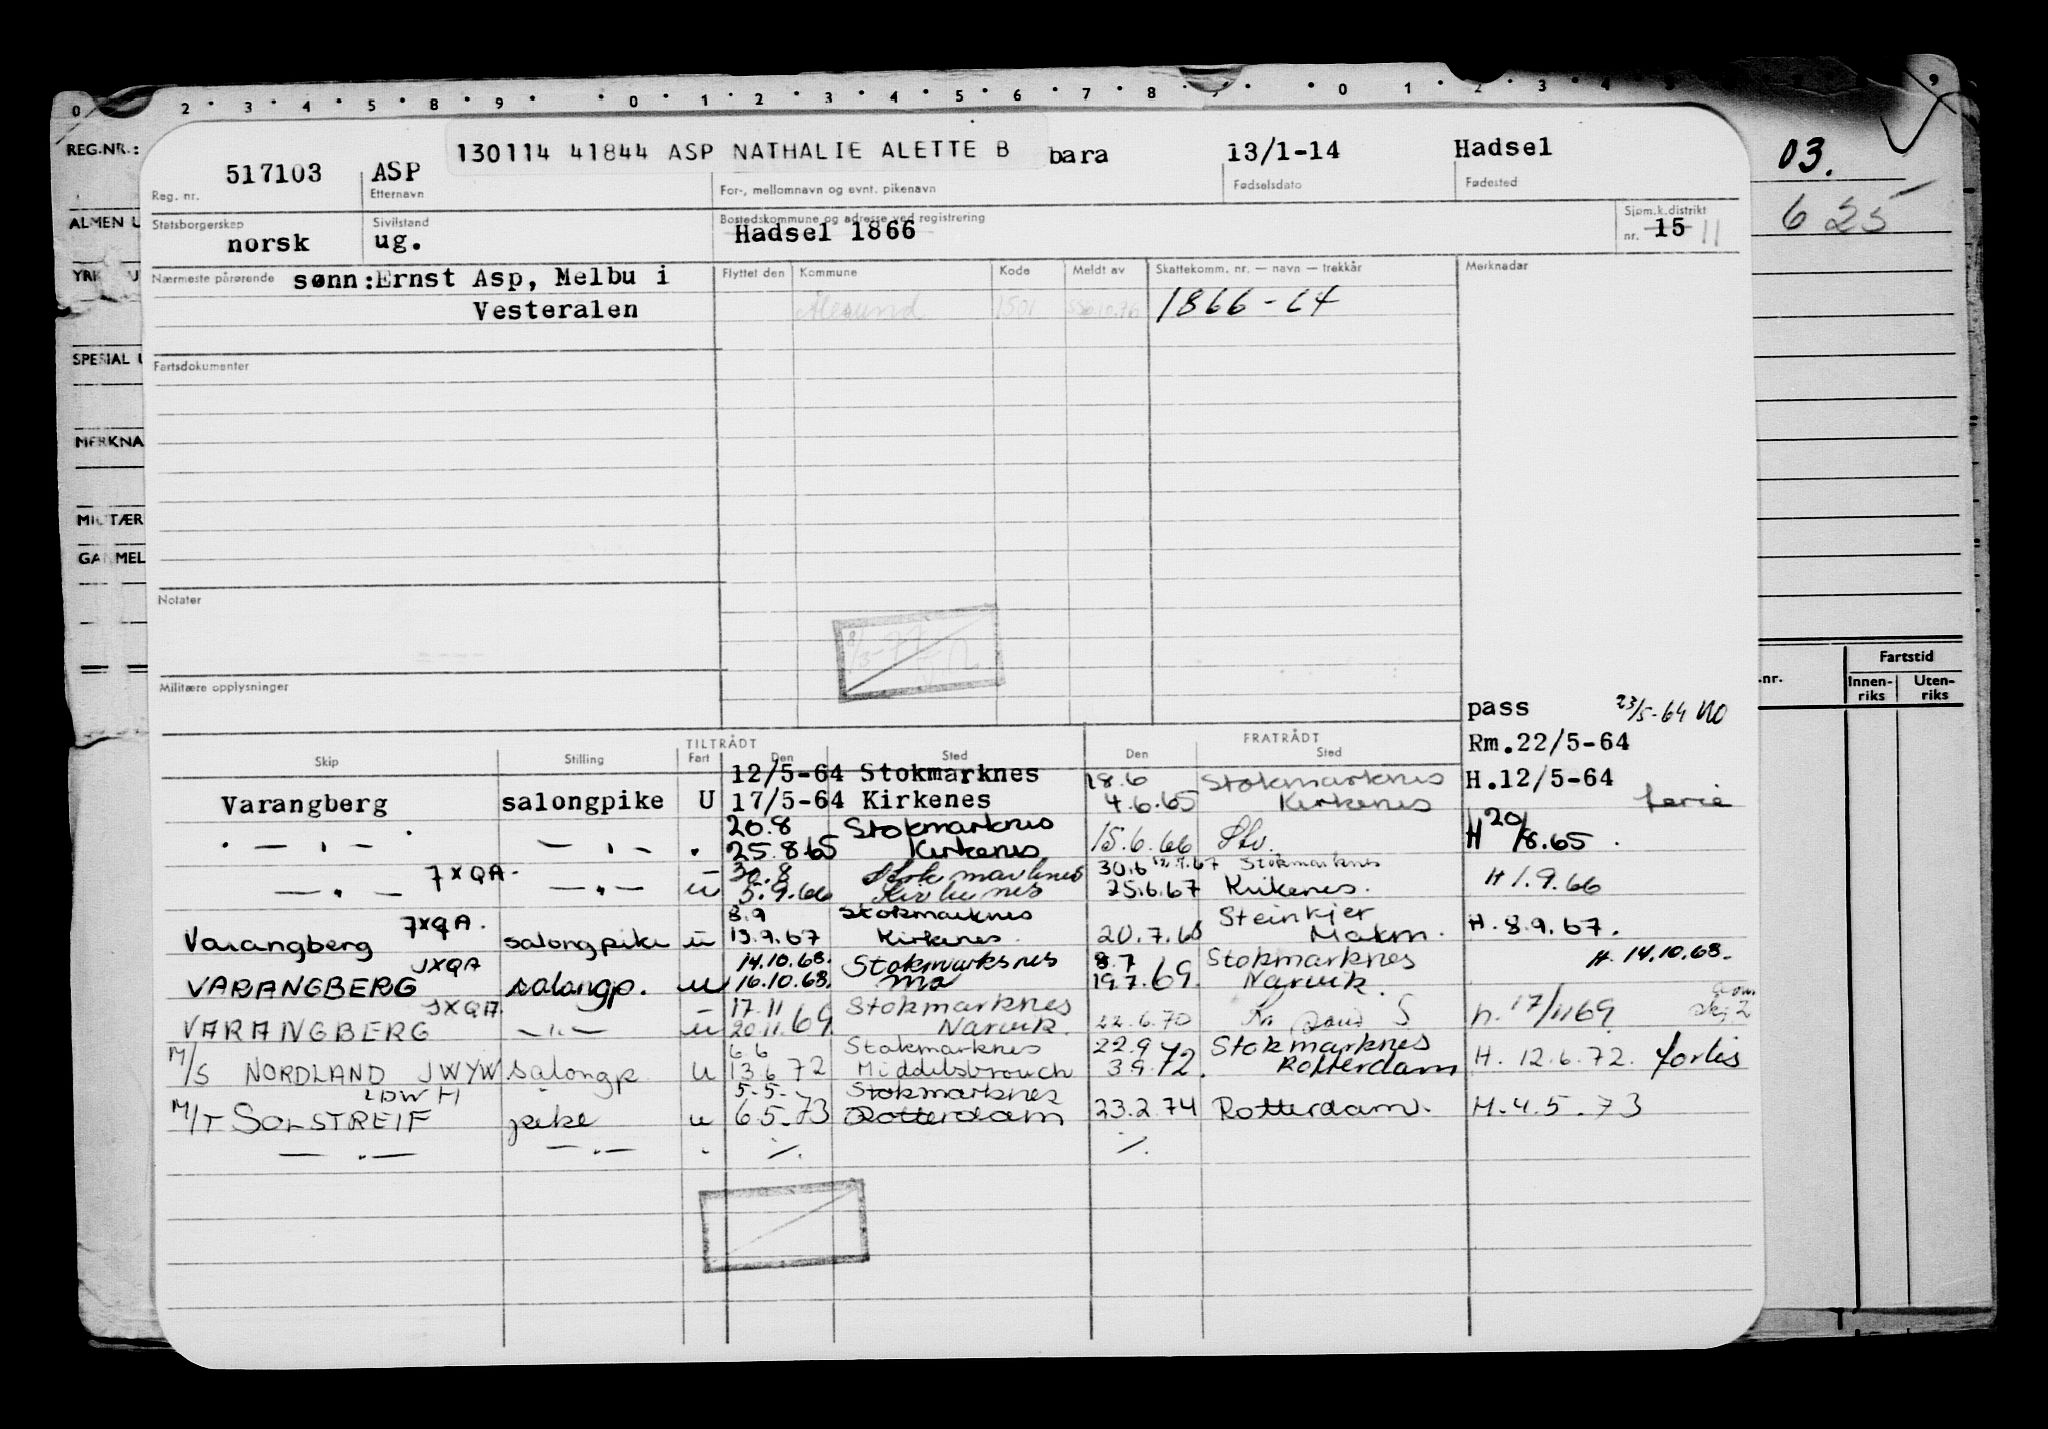 0 2 3 4 5 8 9 0 1 2 3 4 5 6 7 8 9 0 1 2 3 4 5 9
REG.NR.:
ALMEN U
SPESIAL U
MERKNA
03.
6 25
.nr. Fartstid
Innen- Uten-
riks riks
130114 41844 ASP NATHALIE ALETTE B bara 13/1-14 Hadsel
517103 ASP
Reg. nr. Etternavn For-, mellomnavn og evnt. pikenavn Fødselsdato Fødested
Statsborgerskap Sivilstand Bostedskommune og adresse ved registrering Sjøm.k.distrikt
norsk ug. Hadsel 1866 nr. 15 11
Nærmeste pårørende sønn:Ernst Asp, Melbu i Flyttet den Kommune Kode Meldt av Skattekomm. nr. — navn — trekkår Merknader
Vesterålen Ålesund 1501 1866 - 64
Fartsdokumenter
Notater
Militære opplysninger
pass 23/5-64 NO
TILTRÅDT FRATRÅDT Rm.22/5-64
Skip Stilling Fart Den Sted Den Sted
12/5-64 Stokmarknes 18.6 Stokmarknes H.12/5-64
Varangberg salongpike U 17/5-64 Kirkenes 4.6.65 Kirkenes ferie
20.8 Stokmarknes H 20/8.65
" — " — 25.8 65 Kirkenes 15.6.66 Stv.
7XQA 30.8 Stokmarknes 30.6 Stokmarknes
— " — — " — u 5.9.66 Kirkenes 25.6.67 Kirkenes. H 1.9.66
7XQA. 8.9 Stokmarknes Steinkjer
Varangberg salongpike u 13.9.67 Kirkenes. 20.7.68 Makm. H. 8.9.67.
JXQA 14.10.68. Stokmarksnes 8.7 Stokmarknes H. 14.10.68.
VARANGBERG salongp. u 16.10.68. Mo 19.7.69. Narvik.
JXQA. 17.11 Stokmarknes
VARANGBERG — " — u 20.11.69 Narvik. 22.6.70 Kr sand S h. 17/11 69
6.6 Stokmarknes 22.9 Stokmarknes
M/S NORDLAND JWYW salongp u 13.6 72 Middelsbrouch 3.9.72. Rotterdam H. 12.6.72. forlis
LDWH 5.5. Stokmarknes
M/T SOLSTREIF pike u 6.5.73 Rotterdam 23.2.74 Rotterdam. H. 4.5.73
— " — — " — " ·/. ·/.